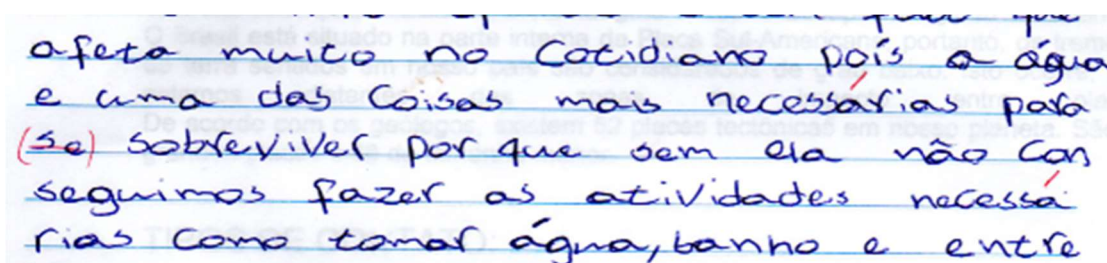 afeta muito no cotidiano pois a água
e uma das coisas mais necessarias para
(se) sobreviver porque sem ela não con
seguimos fazer as atividades necessá
rias como tomar água, banho e entre